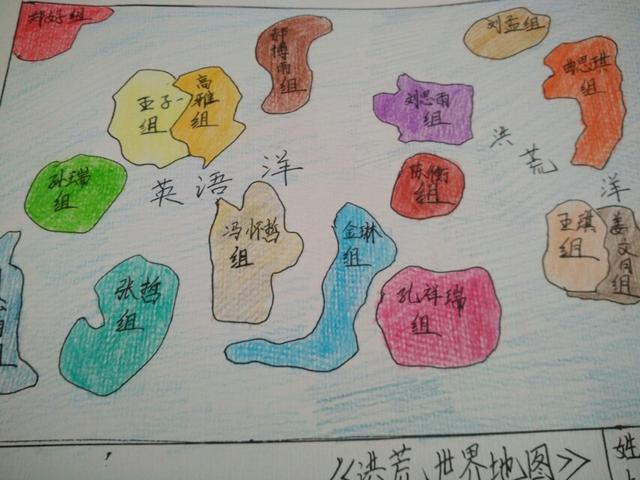 郑好组
郝博雨组
刘孟组
曲思琪组
王子一组
高雅组
刘思雨组
洪荒洋
孙瑞组
英语洋
陈衡组
冯怀哲组
金琳组
王琪组
姜文月组
张哲组
孔祥瑞组
组
《洪荒世界地图》
姓